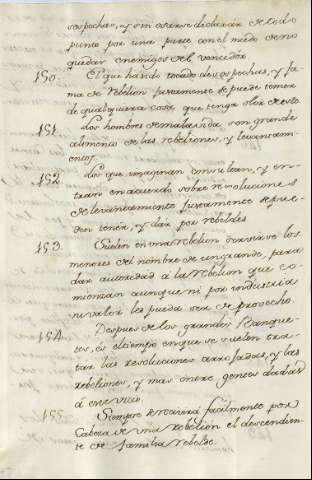 sospechas, y sin osarse declarar de todo
punto por una parte con el miedo de no
quedar enemigos del vencedor.
150. El que ha sido tocado de sospechas, y fa-
ma de rebelion justamente se puede temer
de qualquiera cosa que tenga olor de esto.
151. Los hombres de mala vida son grande
alimento de las rebeliones, y levantami-
entos.
152. Los que imaginan consultan, y en-
tran en acuerdo sobre revoluciones
de levantamiento justamente se pue-
den tener, y dar por rebeldes.
153. Suelen en una rebelion servirse los
menores del nombre de un grande, para
dar autoridad á la rebelion que co-
mienzan aunque ni por industria
ni valor les pueda ser de provecho.
154. Despues de los grandes Banque-
tes, es el tiempo en que se suelen tra-
tar las revoluciones arrojadas, y las
rebeliones, y mas entre gentes dadas
á ese vicio.
155. Siempre se tomará facilmente por
Cabeza de una rebelion el descendien-
te de familia rebelde.